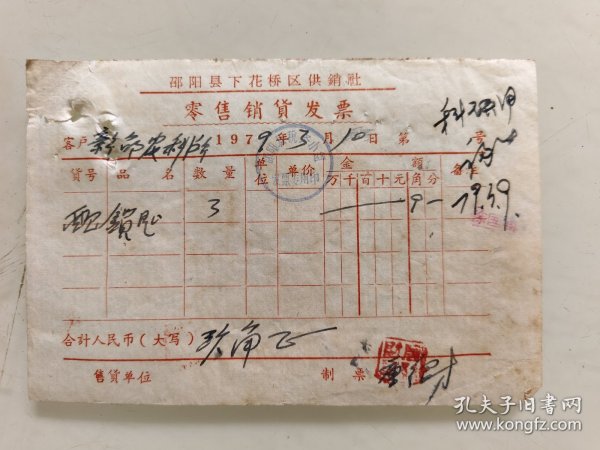 邵阳县下花桥区供銷社
零售销貨发票
客户 1979年3月10日 第 号
貨号 品名 数量 单位 单价 金額 备注
万千百十元角分
配鎖匙 3 9- 79.3.9
合計人民币(大写) 玖角正
售貨单位 制票
孔夫子旧书网
www.kongfz.com